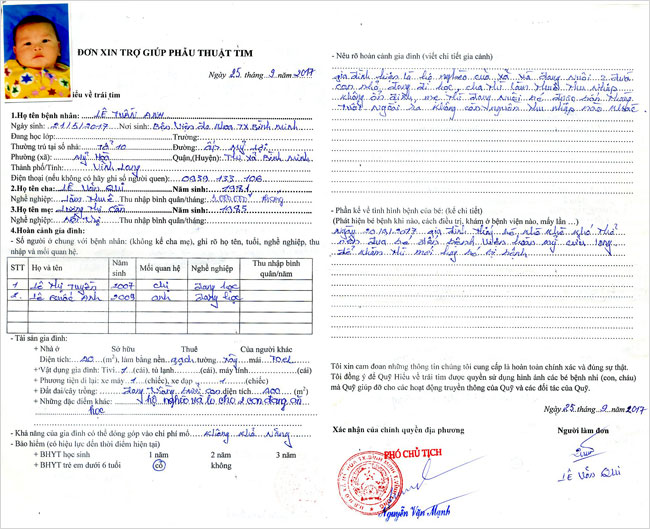 ĐƠN XIN TRỢ GIÚP PHẪU THUẬT TIM
Ngày 25 tháng 9 năm 2017
iểu về trái tim
1.Họ tên bệnh nhân: LÊ TUẤN ANH
Ngày sinh: 21/5/2017 Nơi sinh: Bện Viện Đa Khoa TX Bình Minh
Đang học lớp: Trường:
Thường trú tại số nhà: Tổ 10 Đường: ấp Mỹ Lợi
Phường (xã): Mỹ Hoà Quận,(Huyện): Thị Xã Bình Minh
Thành phố/Tỉnh: Vĩnh Long
Điện thoại (nếu không có hãy ghi số người quen): 0939 133 106
2.Họ tên cha: LÊ Văn Chi Năm sinh: 1981
Nghề nghiệp: Làm Thuê Thu nhập bình quân/tháng:
3.Họ tên mẹ: Năm sinh: 1985
Nghề nghiệp: Nội Trợ Thu nhập bình quân/tháng:
4.Hoàn cảnh gia đình:
- Số người ở chung với bệnh nhân: (không kể cha mẹ), ghi rõ họ tên, tuổi, nghề nghiệp, thu
nhập và mối quan hệ.
STT Họ và tên Năm sinh Mối quan hệ Nghề nghiệp Thu nhập bình quân/năm
1 Lê Thị Tuyền 2007 chị Đang học
2 Lê Phước Anh 2009 anh Đang học
- Tài sản gia đình:
+ Nhà ở Sở hữu Thuê Của người khác
Diện tích: (m²), làm bằng nền: gạch tường: xây mái: Tol
+Vật dụng gia đình: Tivi: 1 (cái), tủ lạnh (cái), máy tính (cái)
+ Phương tiện đi lại: xe máy 1 (chiếc), xe đạp 1 (chiếc)
+ Đất đai/cây trồng: diện tích: (m²)
+ Những đặc điểm khác: hộ nghèo và lo cho 2 con đang ăn
học
- Khả năng của gia đình có thể đóng góp vào chi phí mổ: Không Khả Năng
- Bảo hiểm (có hiệu lực đến thời điểm hiện tại)
+ BHYT học sinh 1 năm 2 năm 3 năm
+ BHYT trẻ em dưới 6 tuổi có không
- Nêu rõ hoàn cảnh gia đình (viết chi tiết gia cảnh)
gia đình hiện là hộ nghèo của xã và đang nuôi 2 đứa
con nhỏ đang đi học, cha thì làm thuê thu nhập
không ổn định, mẹ thì đang nuôi
ngoài ra không còn nguồn thu nhập nào khác
- Phần kể về tình hình bệnh của bé: (kể chi tiết)
(Phát hiện bé bệnh khi nào, cách điều trị, khám ở bệnh viện nào, mấy lần …)
Ngày gia đình thấy bé khó thở
nên đưa bé đến bệnh viện hoàn mỹ cửu long
để khám thì mới hay bé có bệnh
Tôi xin cam đoan những thông tin chúng tôi cung cấp là hoàn toàn chính xác và đúng sự thật.
Tôi đồng ý để Quỹ Hiểu về trái tim được quyền sử dụng hình ảnh các bé bệnh nhi (con, cháu)
mà Quỹ giúp đỡ cho các hoạt động truyền thông của Quỹ và các đối tác của Quỹ.
Ngày 25 tháng 9 năm 2017
Xác nhận của chính quyền địa phương Người làm đơn
PHÓ CHỦ TỊCH
LÊ Văn Chi
Nguyễn Văn Mạnh